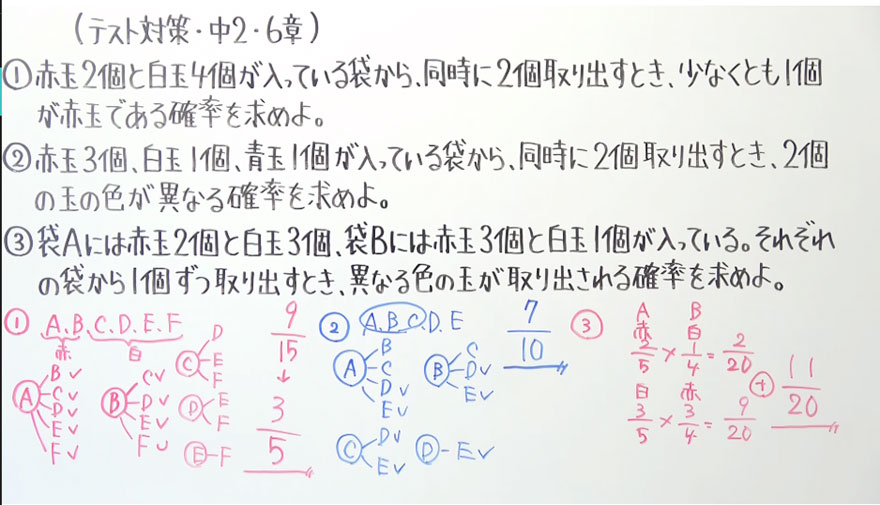 (テスト対策・中2・6章)
①赤玉2個と白玉4個が入っている袋から、同時に2個取り出すとき、少なくとも1個
が赤玉である確率を求めよ。
②赤玉3個、白玉1個、青玉1個が入っている袋から、同時に2個取り出すとき、2個
の玉の色が異なる確率を求めよ。
③袋Aには赤玉2個と白玉3個、袋Bには赤玉3個と白玉1個が入っている。それぞれ
の袋から1個ずつ取り出すとき、異なる色の玉が取り出される確率を求めよ。
① A.B.C.D.E.F
赤 白
A B✓ C✓ D✓ E✓ F✓
B C✓ D✓ E✓ F✓
C D E F
D E F
E-F
9/15
↓
3/5
② A.B.C.D.E
A B C D✓ E✓
B C D✓ E✓
C D✓ E✓
D-E✓
7/10
③ A B
赤 白
2/5 × 1/4 = 2/20
白 赤
3/5 × 3/4 = 9/20
+
11/20